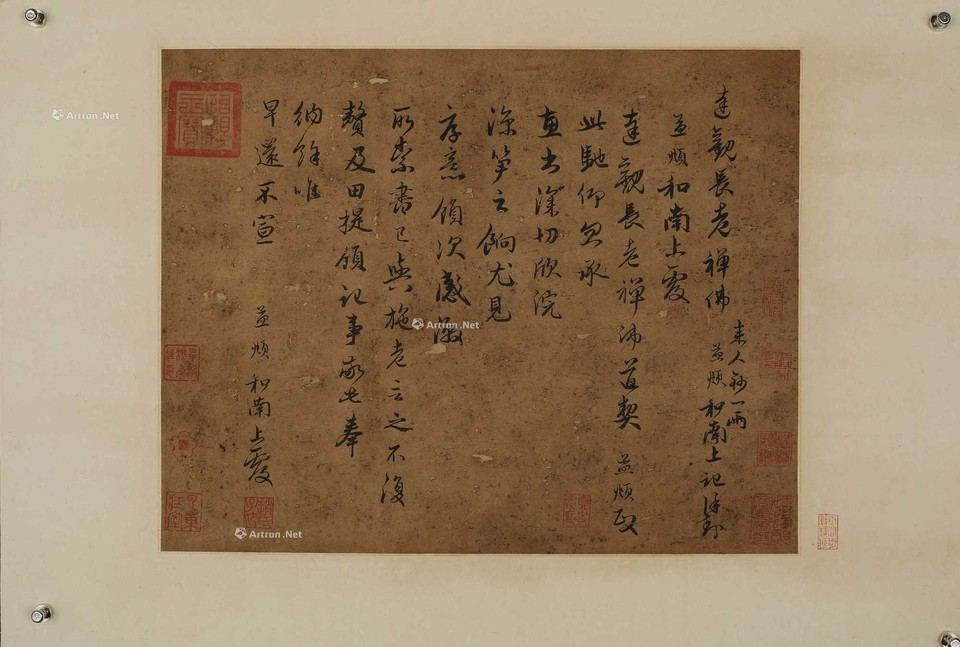 達觀長老禪師
來人鈔一兩
孟頫和南上記
孟頫和南上覆
達觀長老禪師道契 孟頫政
此馳仰忽承
惠書深切欣浣
笋之餉尤見
厚意領次感激
所索書已與施老言之不復
贅及田提領記事奉
納餘唯
早還不宣 孟頫和南上覆
Artron.Net
Artron.Net
Artron.Net